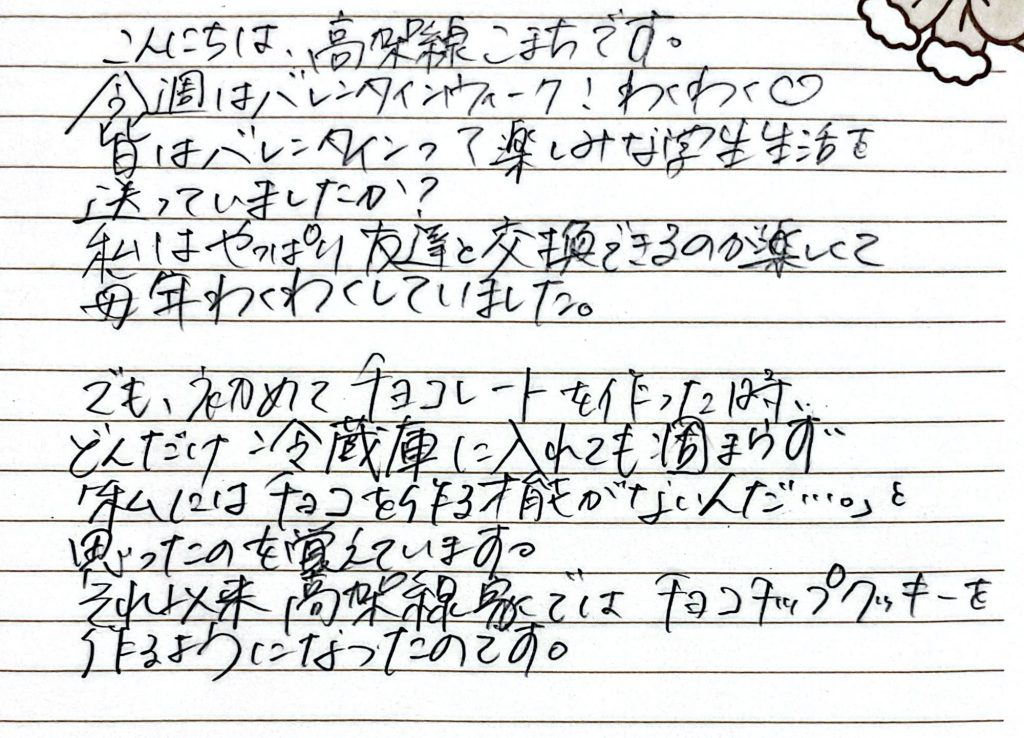 こんにちは、高架線こまちです。
今週はバレンタインウィーク！わくわく♡
皆はバレンタインって楽しみな学生生活を
送っていましたか？
私はやっぱり友達と交換できるのが楽しくて
毎年わくわくしていました。
でも、初めてチョコレートを作った時、
どんだけ冷蔵庫に入れても固まらず
「私にはチョコを作る才能がないんだ…。」と
思ったのを覚えています。
それ以来高架線家ではチョコチップクッキーを
作るようになったのです。